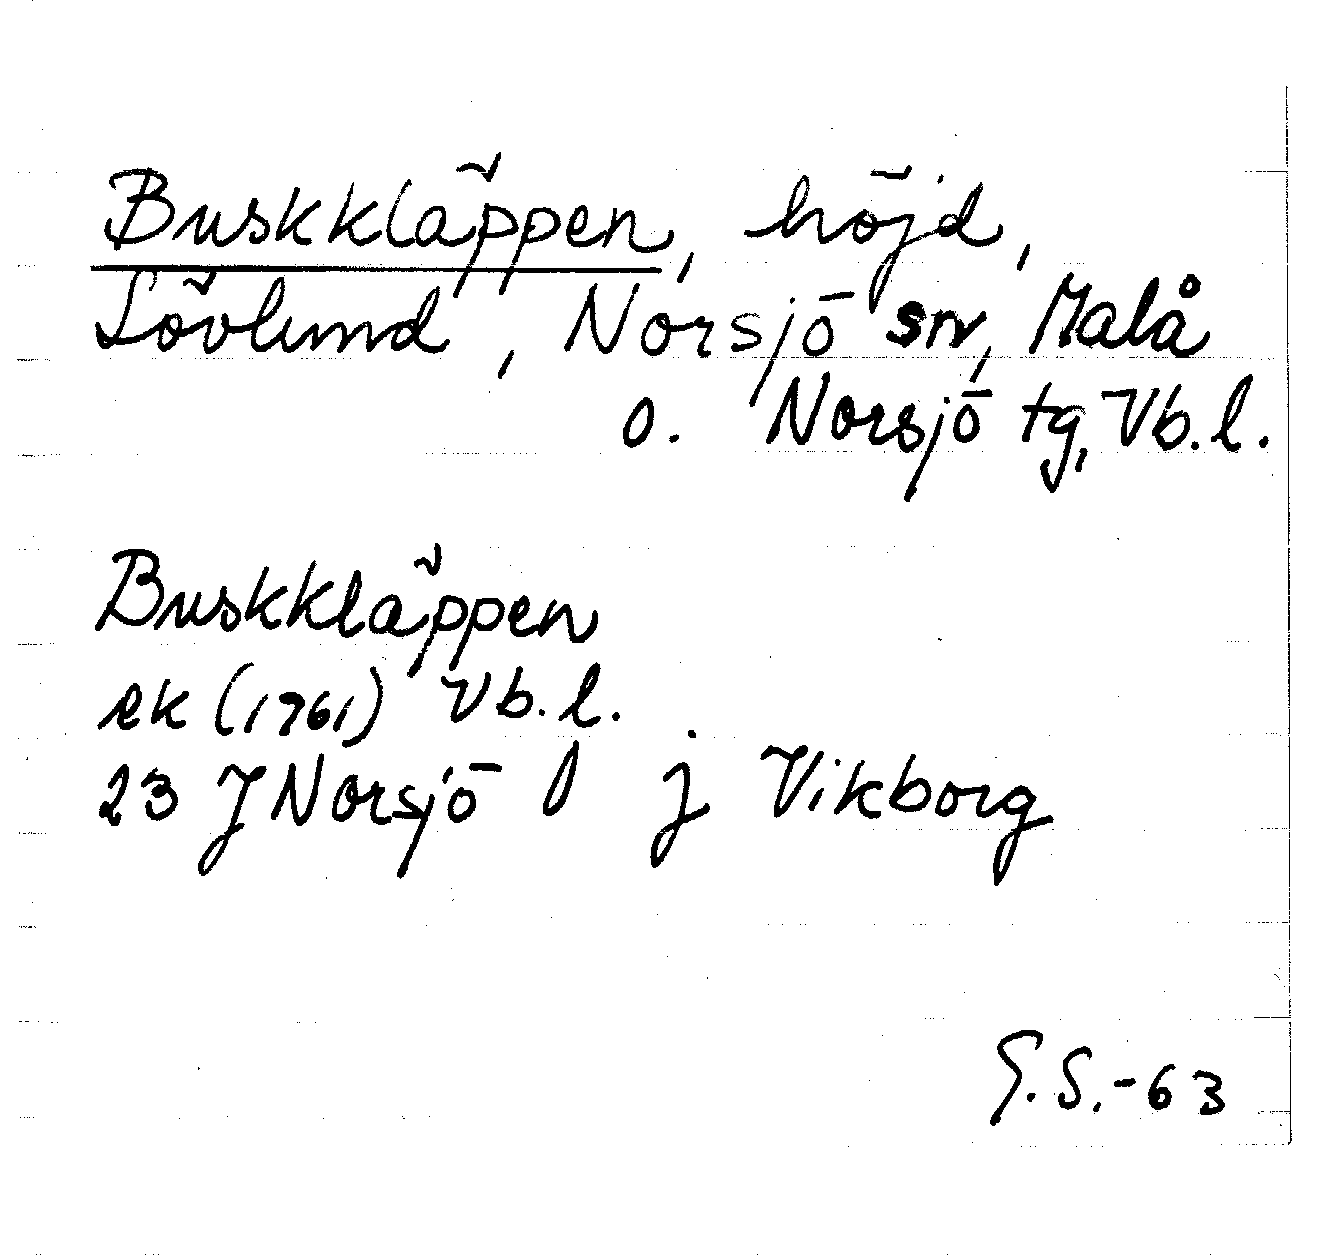 Buskkläppen, höjd,
Lövlund, Norsjö sn, Malå
o. Norsjö tg, Vb.l.
Buskkläppen
ek (1961) Vb.l.
23 J Norsjö l j Vikborg
G.S.-63